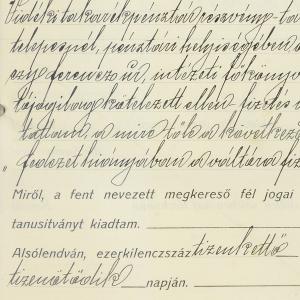 Vidéki takarékpénztár részvény-tár
telepesnél, pénztári helyiségében
Ferencz úr, intézeti főkönyv
kötelezett ellen fizetés
a mire tőle a következő
„ fedezet hiányában a váltóra fiz
Miről, a fent nevezett megkereső fél jogai
tanusitványt kiadtam.
Alsólendván, ezerkilenczszáz tizenkettő
tizenötödik napján.